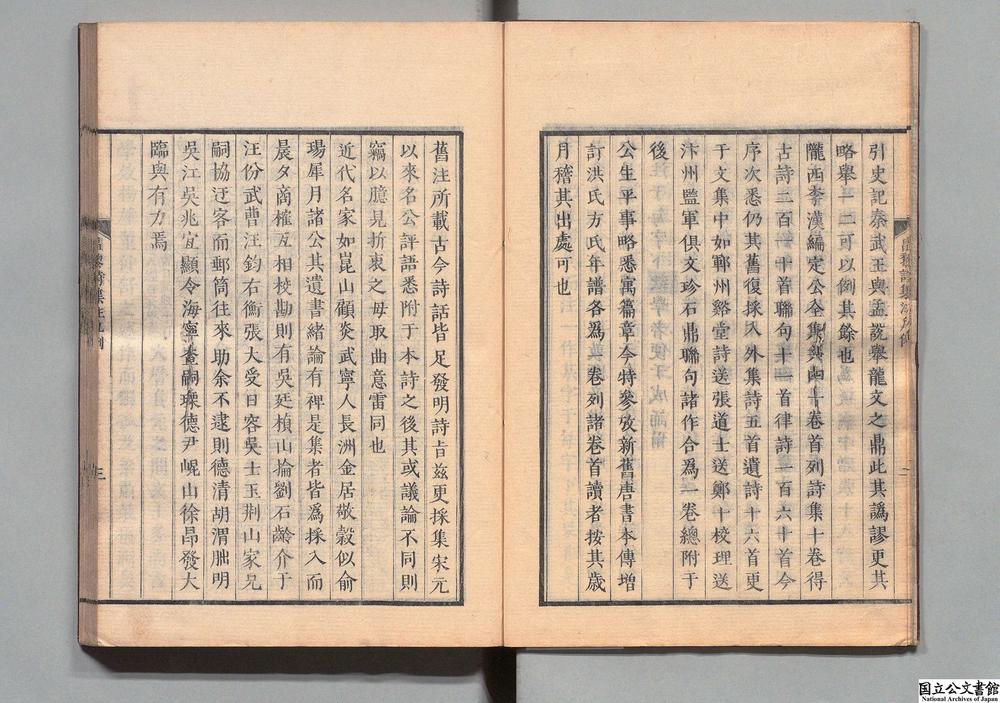 引史記秦武王與孟說舉龍文之鼎此其譌謬更甚
略舉一二可以例其餘也
隴西李漢編定公全集四十卷首列詩集十卷得
古詩二百一十首聯句十一首律詩一百六十首今
序次悉仍其舊復採入外集詩五首遺詩十六首更
于文集中如鄆州谿堂詩送張道士送鄭十校理送
汴州監軍俱文珍石鼎聯句諸作合爲一卷總附于
後
公生平事略悉寓篇章今特參攷新舊唐書本傳增
訂洪氏方氏年譜各爲一卷列諸卷首讀者按其歲
月稽其出處可也
舊注所載古今詩話皆足發明詩旨玆更採集宋元
以來名公評語悉附于本詩之後其或議論不同則
竊以臆見折衷之毋取曲意雷同也
近代名家如崑山顧炎武寧人長洲金居敬穀似俞
瑒犀月諸公其遺書緒論有裨是集者皆爲採入而
晨夕商榷互相校勘則有吳廷楨山掄劉石齡介于
汪份武曹汪鈞右衡張大受日容吳士玉荆山家兄
嗣協迂客而郵筒往來助余不逮則德清胡渭朏明
吳江吳兆宜顯令海寧查嗣瑮德尹崐山徐昂發大
臨與有力焉
昌黎詩集注凡例
三